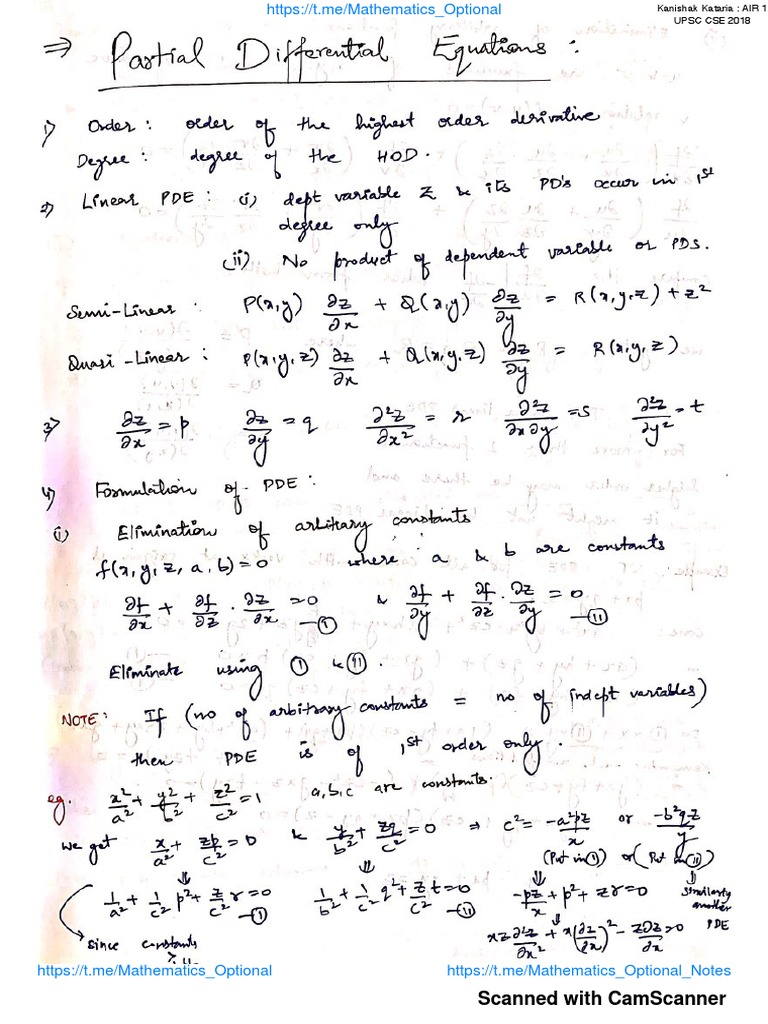 https://t.me/Mathematics_Optional
Kanishak Kataria : AIR 1
UPSC CSE 2018
⇒ Partial Differential Equations :
1) Order : order of the highest order derivative
Degree : degree of the HOD.
2) Linear PDE : (i) dept variable Z & its PD's occur in 1st
degree only
(ii) No product of dependent variable or PDS.
Semi-Linear : P(x,y) ∂z/∂x + Q(x,y) ∂z/∂y = R(x,y,z) + z²
Quasi-Linear : P(x,y,z) ∂z/∂x + Q(x,y,z) ∂z/∂y = R(x,y,z)
3) ∂z/∂x = p ∂z/∂y = q ∂²z/∂x² = r ∂²z/∂x∂y = s ∂²z/∂y² = t
4) Formulation of PDE :
(i) Elimination of arbitary constants
f(x,y,z,a,b)=0 where a & b are constants
∂f/∂x + ∂f/∂z . ∂z/∂x = 0 —(I) & ∂f/∂y + ∂f/∂z . ∂z/∂y = 0 —(II)
Eliminate using (I) & (II).
NOTE: If (no of arbitrary constants = no of indept variables)
then PDE is of 1st order only.
eg. x²/a² + y²/b² + z²/c² = 1 a,b,c are constants.
we get x/a² + zp/c² = 0 & y/b² + zq/c² = 0 ⇒ c² = -a²pz/x or -b²qz/y
(Put in (I)) or (Put in (II))
1/a² + 1/c² p² + z/c² r = 0 —(I) 1/b² + 1/c² q² + z/c² t = 0 —(II) -pz/x + p² + zr = 0 similarly another PDE
xz ∂²z/∂x² + x(∂z/∂x)² - z∂z/∂x = 0
since constants
https://t.me/Mathematics_Optional
https://t.me/Mathematics_Optional_Notes
Scanned with CamScanner